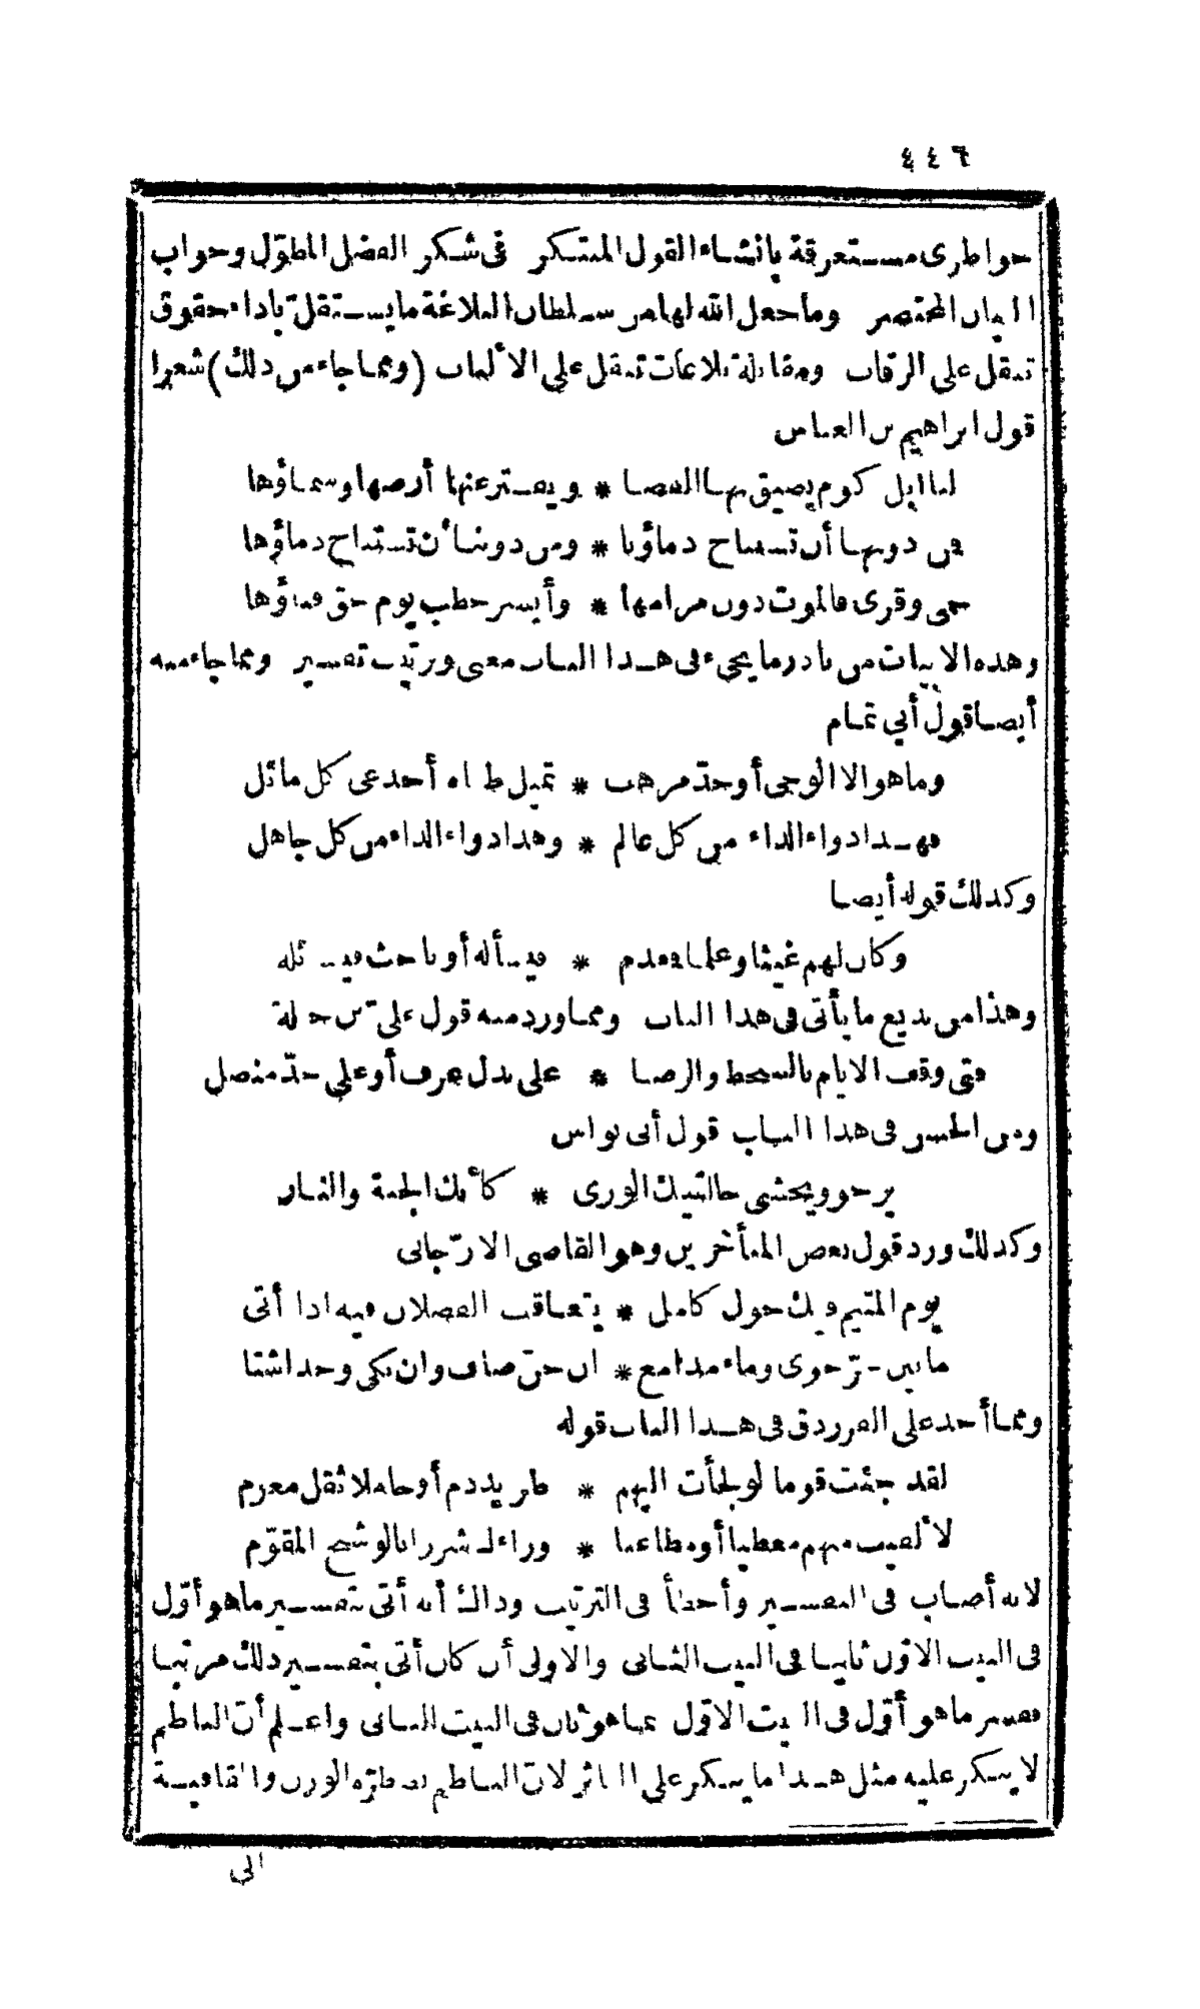 ٤٤٦
خواطرى مستغرقة بانشاء القول المبتكر فى شكر الفضل المطوّل وجواب
البيان المختصر وما جعل الله لها من سلطان البلاغة ما يستقلّ بأداء حقوق
تثقل على الرقاب ومقابلة بلاغات تثقل على الألباب (ومما جاء من ذلك) شعرا
قول ابراهيم بن العباس
لنا ابل كوم يضيق بها الفضا * ويفتر عنها أرضها وسماؤها
فمن دونها أن تستباح دماؤنا * ومن دوننا أن تستباح دماؤها
حمى وقرى فالموت دون مرامها * وأيسر خطب يوم حق فناؤها
وهذه الابيات من نادر ما يجىء فى هذا الباب معنى وترتيب تفسير ومما جاء منه
أيضا قول أبي تمام
وما هو الا الوحى أو حدّ مرهف * تميل ظباه أخدعى كل مائل
فهذا دواء الداء من كل عالم * وهذا دواء الداء من كل جاهل
وكذلك قوله أيضا
وكان لهم غيثا وعلما فمعدم * فيسأله أو باحث فيسائله
وهذا من بديع ما يأتى فى هذا الباب ومما ورد منه قول علىّ بن جبلة
فتى وقف الايام بالسخط والرضا * على بذل عرف أو على حدّ منصل
ومن الحسن فى هذا الباب قول أبى نواس
يرجو ويخشى حالتيك الورى * كأنك الجنة والنار
وكذلك ورد قول بعض المتأخرين وهو القاضى الارّجانى
يوم المتيم فيك حول كامل * يتعاقب الفصلان فيه اذا أتى
ما بين حرّ جوى وماء مدامع * ان حنّ صاف وان بكى وجدا شتا
ومما أخذ على الفرزدق فى هذا الباب قوله
لقد جئت قوما لو لجأت اليهم * طريد دم أو حاملا ثقل مغرم
لألفيت منهم معطيا أو مطاعنا * وراءك شزرا بالوشيج المقوّم
لانه أصاب فى التفسير وأخطأ فى الترتيب وذاك أنه أتى بتفسير ما هو أوّل
فى البيت الاوّل ثانيا فى البيت الثانى والاولى أن كان أتى بتفسير ذلك مرتبا
ففسر ما هو أوّل فى البيت الاوّل بما هو ثان فى البيت الثانى واعلم أنّ الناظم
لا ينكر عليه مثل هذا ما ينكر على الناثر لانّ الناظم يضطرّه الوزن والقافية
الى